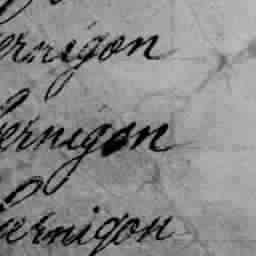 ernigon
bernigon
bernigon